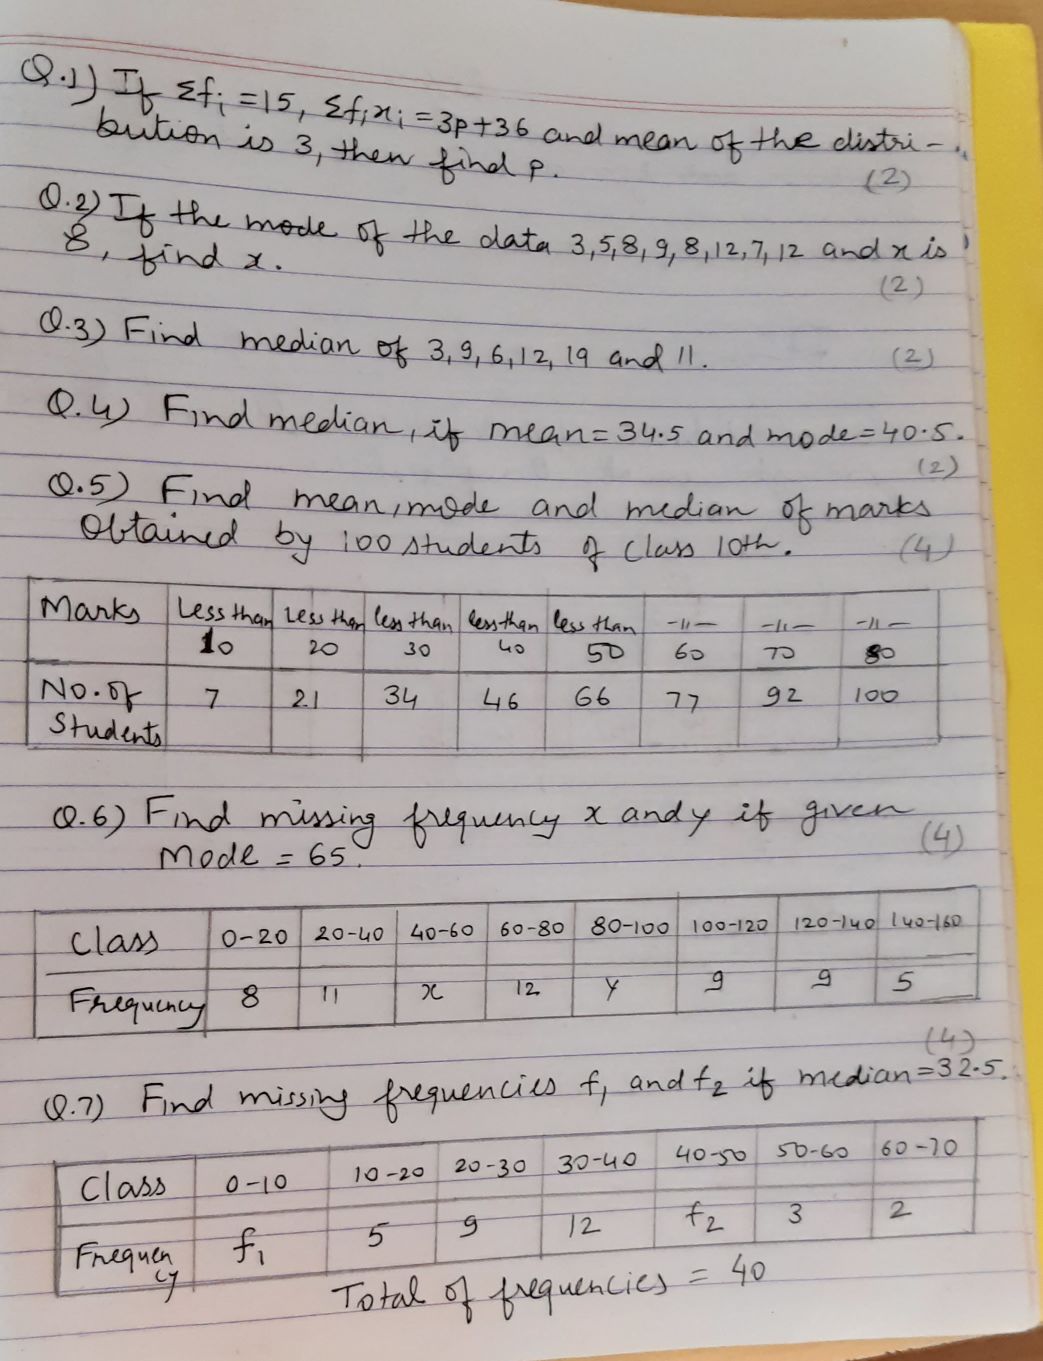 Q.1) If Σfi =15, Σfixi = 3p+36 and mean of the distri-
bution is 3, then find p.
(2)
Q.2) If the mode of the data 3,5,8,9,8,12,7,12 and x is
8, find x.
(2)
Q.3) Find median of 3,9,6,12,19 and 11. (2)
Q.4) Find median, if mean=34.5 and mode=40.5.
(2)
Q.5) Find mean, mode and median of marks
Obtained by 100 students of Class 10th. (4)
Marks Less than Less than less than less than less than -11- -11- -11-
10 20 30 40 50 60 70 80
No. of 7 21 34 46 66 77 92 100
Students
Q.6) Find missing frequency x and y if given
Mode = 65. (4)
Class 0-20 20-40 40-60 60-80 80-100 100-120 120-140 140-160
Frequency 8 11 x 12 y 9 9 5
(4)
Q.7) Find missing frequencies f1 and f2 if median=32.5.
Class 0-10 10-20 20-30 30-40 40-50 50-60 60-70
Frequen f1 5 9 12 f2 3 2
cy
Total of frequencies = 40